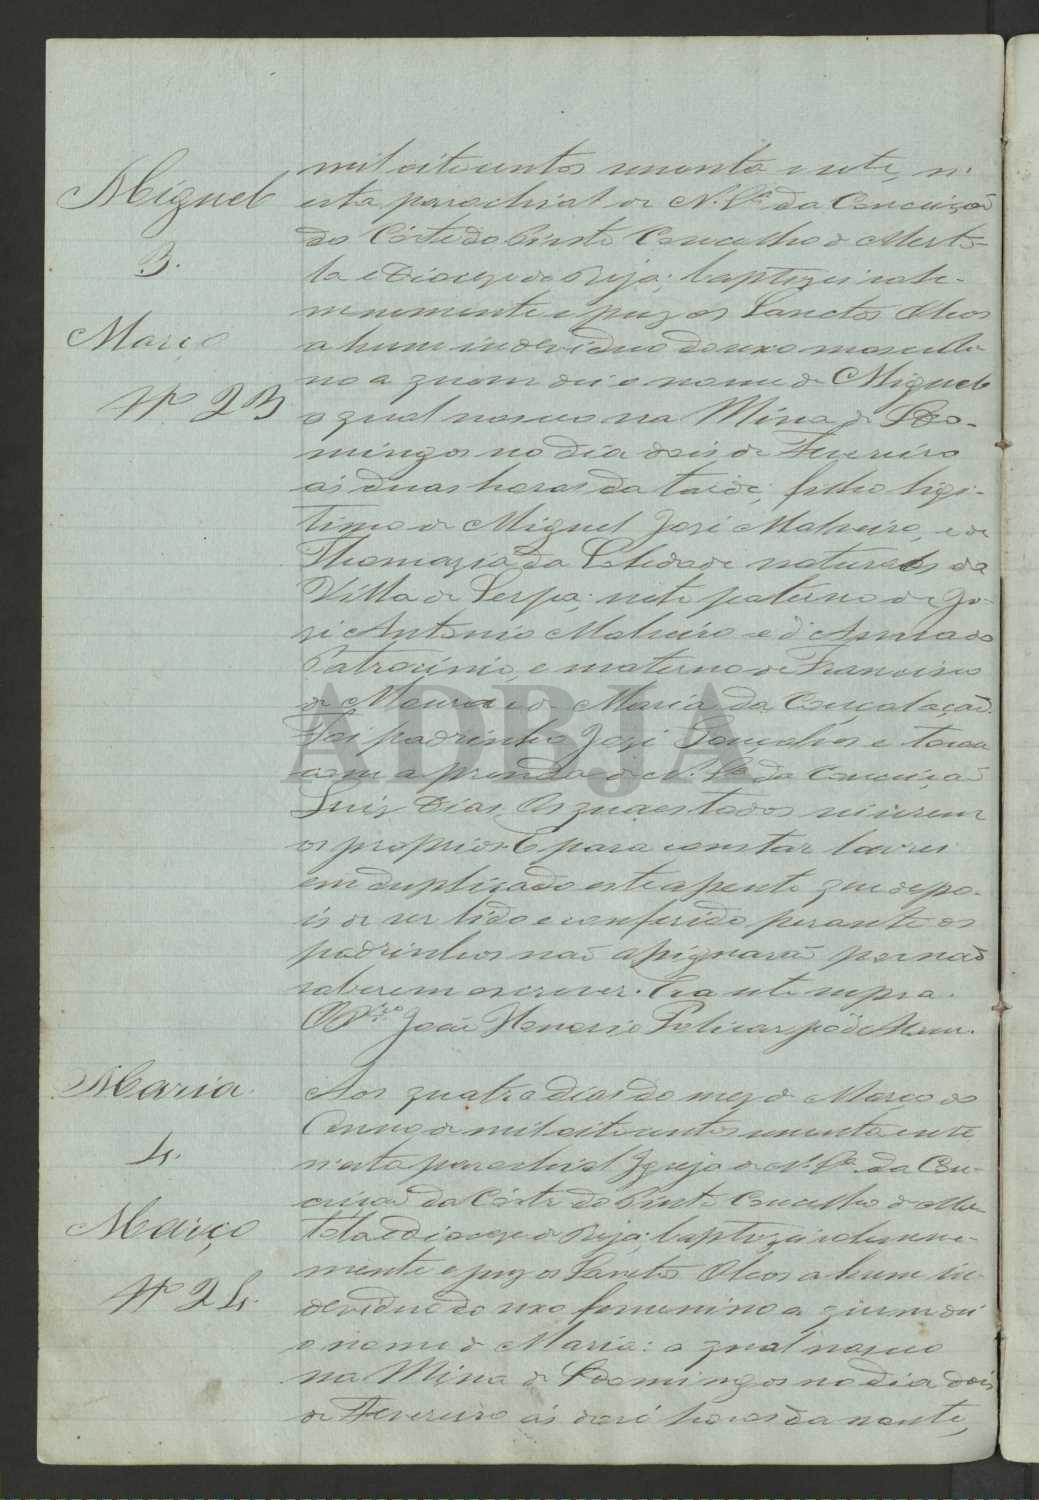 mil oitocentos senenta e sete, n'
esta parochial de N. Sra. da Conceição
da Côrte do Pinto Concelho de Merto-
la e Diocese de Beja; baptizei solen-
nemente e puz os Sanctos Oleos
a hum individuo do sexo masculi
no a quem dei o nome de Miguel
o qual nasceu na Mina de S. Do-
mingos no dia dois de Fevereiro
ás duas horas da tarde; filho ligi-
timo de Miguel José Malveiro, e de
Thomazia da Soledade naturaes da
Villa de Serpa; neto paterno de Jo-
zé Antonio Malveiro e d'Anna do
Patrocinio, e materno de Francisco
de Moura e de Maria da Conçolação.
Foi padrinho José Gonçalves e tocou
com a prenda de N. Sra. da Conceição
Luiz Dias. Os quaes todos
os proprios E para constar lavrei
em duplicado este assento que depo-
is de ser lido e conferido perante os
padrinhos não assignarão por não
saberem escrever. Era ut supra.
João Honorio Policarpo de
Miguel
3.
Março
Nº 23
Maria
4.
Março
Nº 24.
Aos quatro dias do mez de Março do
Anno de mil oitocentos senenta e sete
n'esta parochial Igreja de N. Sra. da Con-
ceição da Côrte do Pinto Concelho de Mer
tola e diocese de Beja; baptizei solemne-
mente e puz os Sanctos Oleos a hum in-
dividuo do sexo femenino a quem dei
o nome de Maria: a qual nasceu
na Mina de S. Domingos no dia dois
de Fevereiro ás horas da noute,
ADBJA